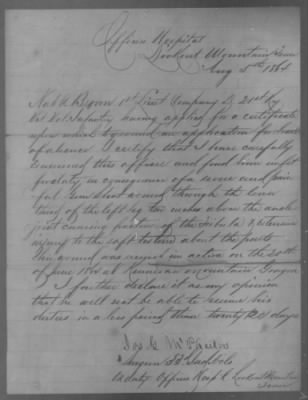 Officers Hospital
Lookout Mountain Tenn
Aug 5th 1864
1st Lieut Company D, 21st Ky
Vol Infantry having applied for a certificate
upon which to ground an application for leave
of absence I certify that I have carefully
examined this officer and find him unfit
for duty in consequence of a severe and pain-
ful Gun shot wound through the lower
third of the left leg two inches above the ankle
just causing fracture of the fibula & extensive
injury to the soft tissues about the parts
This wound was received in action on the 20th
of June 1864 at Kennesaw mountain Georgia
I further declare it as my opinion
that he will not be able to resume his
duties in a less period than twenty (20) days
Jos. C. McPheeters
Surgeon
on duty Officers Hosp'l Lookout Mountain
Tenn